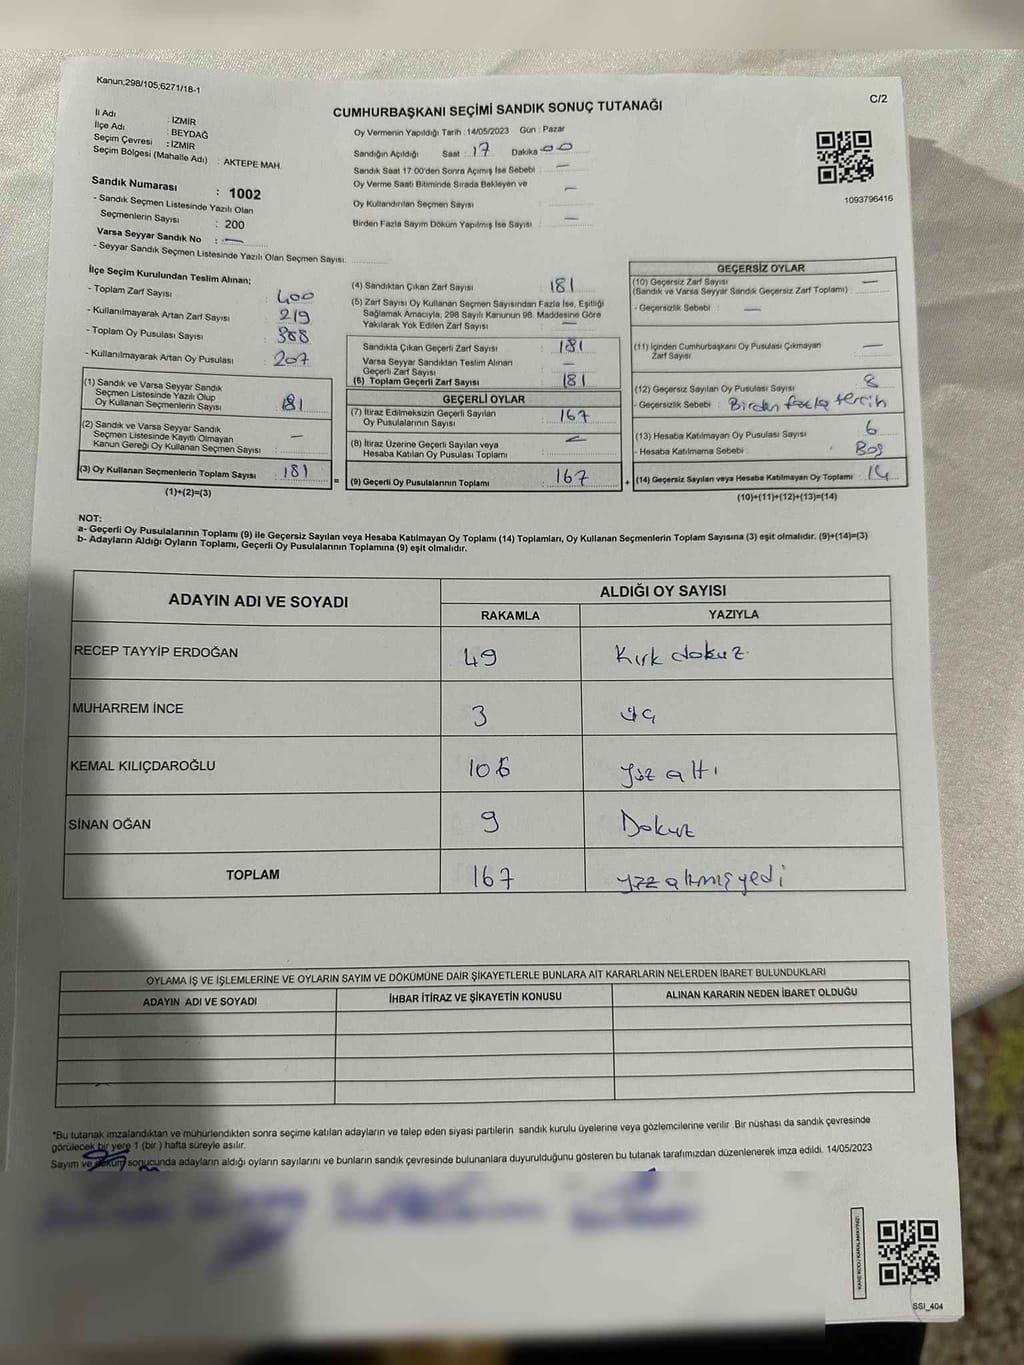 Kanun;298/105,6271/18-1
C/2
CUMHURBAŞKANI SEÇİMİ SANDIK SONUÇ TUTANAĞI
İl Adı : İZMİR
İlçe Adı : BEYDAĞ
Seçim Çevresi : İZMİR
Seçim Bölgesi (Mahalle Adı) : AKTEPE MAH.
Sandık Numarası : 1002
- Sandık Seçmen Listesinde Yazılı Olan
Seçmenlerin Sayısı : 200
Varsa Seyyar Sandık No : —
- Seyyar Sandık Seçmen Listesinde Yazılı Olan Seçmen Sayısı:
Oy Vermenin Yapıldığı Tarih : 14/05/2023 Gün : Pazar
Sandığın Açıldığı Saat : 17 Dakika 00
Sandık Saat 17:00'den Sonra Açımış İse Sebebi : —
Oy Verme Saati Bitiminde Sırada Bekleyen ve —
Oy Kullandırılan Seçmen Sayısı
Birden Fazla Sayım Döküm Yapılmış İse Sayısı : —
1093796416
İlçe Seçim Kurulundan Teslim Alınan;
- Toplam Zarf Sayısı : 400
- Kullanılmayarak Artan Zarf Sayısı : 219
- Toplam Oy Pusulası Sayısı : 388
- Kullanılmayarak Artan Oy Pusulası : 207
(1) Sandık ve Varsa Seyyar Sandık
Seçmen Listesinde Yazılı Olup
Oy Kullanan Seçmenlerin Sayısı : 181
(2) Sandık ve Varsa Seyyar Sandık
Seçmen Listesinde Kayıtlı Olmayan
Kanun Gereği Oy Kullanan Seçmen Sayısı : —
(3) Oy Kullanan Seçmenlerin Toplam Sayısı : 181
(1)+(2)=(3)
(4) Sandıktan Çıkan Zarf Sayısı : 181
(5) Zarf Sayısı Oy Kullanan Seçmen Sayısından Fazla İse, Eşitliği
Sağlamak Amacıyla, 298 Sayılı Kanunun 98. Maddesine Göre
Yakılarak Yok Edilen Zarf Sayısı : —
Sandıkta Çıkan Geçerli Zarf Sayısı : 181
Varsa Seyyar Sandıktan Teslim Alınan
Geçerli Zarf Sayısı : —
(6) Toplam Geçerli Zarf Sayısı : 181
GEÇERLİ OYLAR
(7) İtiraz Edilmeksizin Geçerli Sayılan
Oy Pusulalarının Sayısı : 167
(8) İtiraz Üzerine Geçerli Sayılan veya
Hesaba Katılan Oy Pusulası Toplamı : —
= (9) Geçerli Oy Pusulalarının Toplamı : 167
GEÇERSİZ OYLAR
(10) Geçersiz Zarf Sayısı
(Sandık ve Varsa Seyyar Sandık Geçersiz Zarf Toplamı) : —
- Geçersizlik Sebebi : —
(11) İçinden Cumhurbaşkanı Oy Pusulası Çıkmayan
Zarf Sayısı : —
(12) Geçersiz Sayılan Oy Pusulası Sayısı : 8
- Geçersizlik Sebebi : Birden fazla tercih
(13) Hesaba Katılmayan Oy Pusulası Sayısı : 6
- Hesaba Katılmama Sebebi : Boş
+ (14) Geçersiz Sayılan veya Hesaba Katılmayan Oy Toplamı : 14
(10)+(11)+(12)+(13)=(14)
NOT:
a- Geçerli Oy Pusulalarının Toplamı (9) ile Geçersiz Sayılan veya Hesaba Katılmayan Oy Toplamı (14) Toplamları, Oy Kullanan Seçmenlerin Toplam Sayısına (3) eşit olmalıdır. (9)+(14)=(3)
b- Adayların Aldığı Oyların Toplamı, Geçerli Oy Pusulalarının Toplamına (9) eşit olmalıdır.
ADAYIN ADI VE SOYADI ALDIĞI OY SAYISI
RAKAMLA YAZIYLA
RECEP TAYYİP ERDOĞAN 49 Kırk dokuz
MUHARREM İNCE 3 üç
KEMAL KILIÇDAROĞLU 106 Yüz altı
SİNAN OĞAN 9 Dokuz
TOPLAM 167 yüz altmış yedi
OYLAMA İŞ VE İŞLEMLERİNE VE OYLARIN SAYIM VE DÖKÜMÜNE DAİR ŞİKAYETLERLE BUNLARA AİT KARARLARIN NELERDEN İBARET BULUNDUKLARI
ADAYIN ADI VE SOYADI İHBAR İTİRAZ VE ŞİKAYETİN KONUSU ALINAN KARARIN NEDEN İBARET OLDUĞU
*Bu tutanak imzalandıktan ve mühürlendikten sonra seçime katılan adayların ve talep eden siyasi partilerin sandık kurulu üyelerine veya gözlemcilerine verilir .Bir nüshası da sandık çevresinde
görülecek bir yere 1 (bir ) hafta süreyle asılır.
Sayım ve döküm sonucunda adayların aldığı oyların sayılarını ve bunların sandık çevresinde bulunanlara duyurulduğunu gösteren bu tutanak tarafımızdan düzenlenerek imza edildi. 14/05/2023
KARE KODU KARALAMAYINIZ!
SSI_404